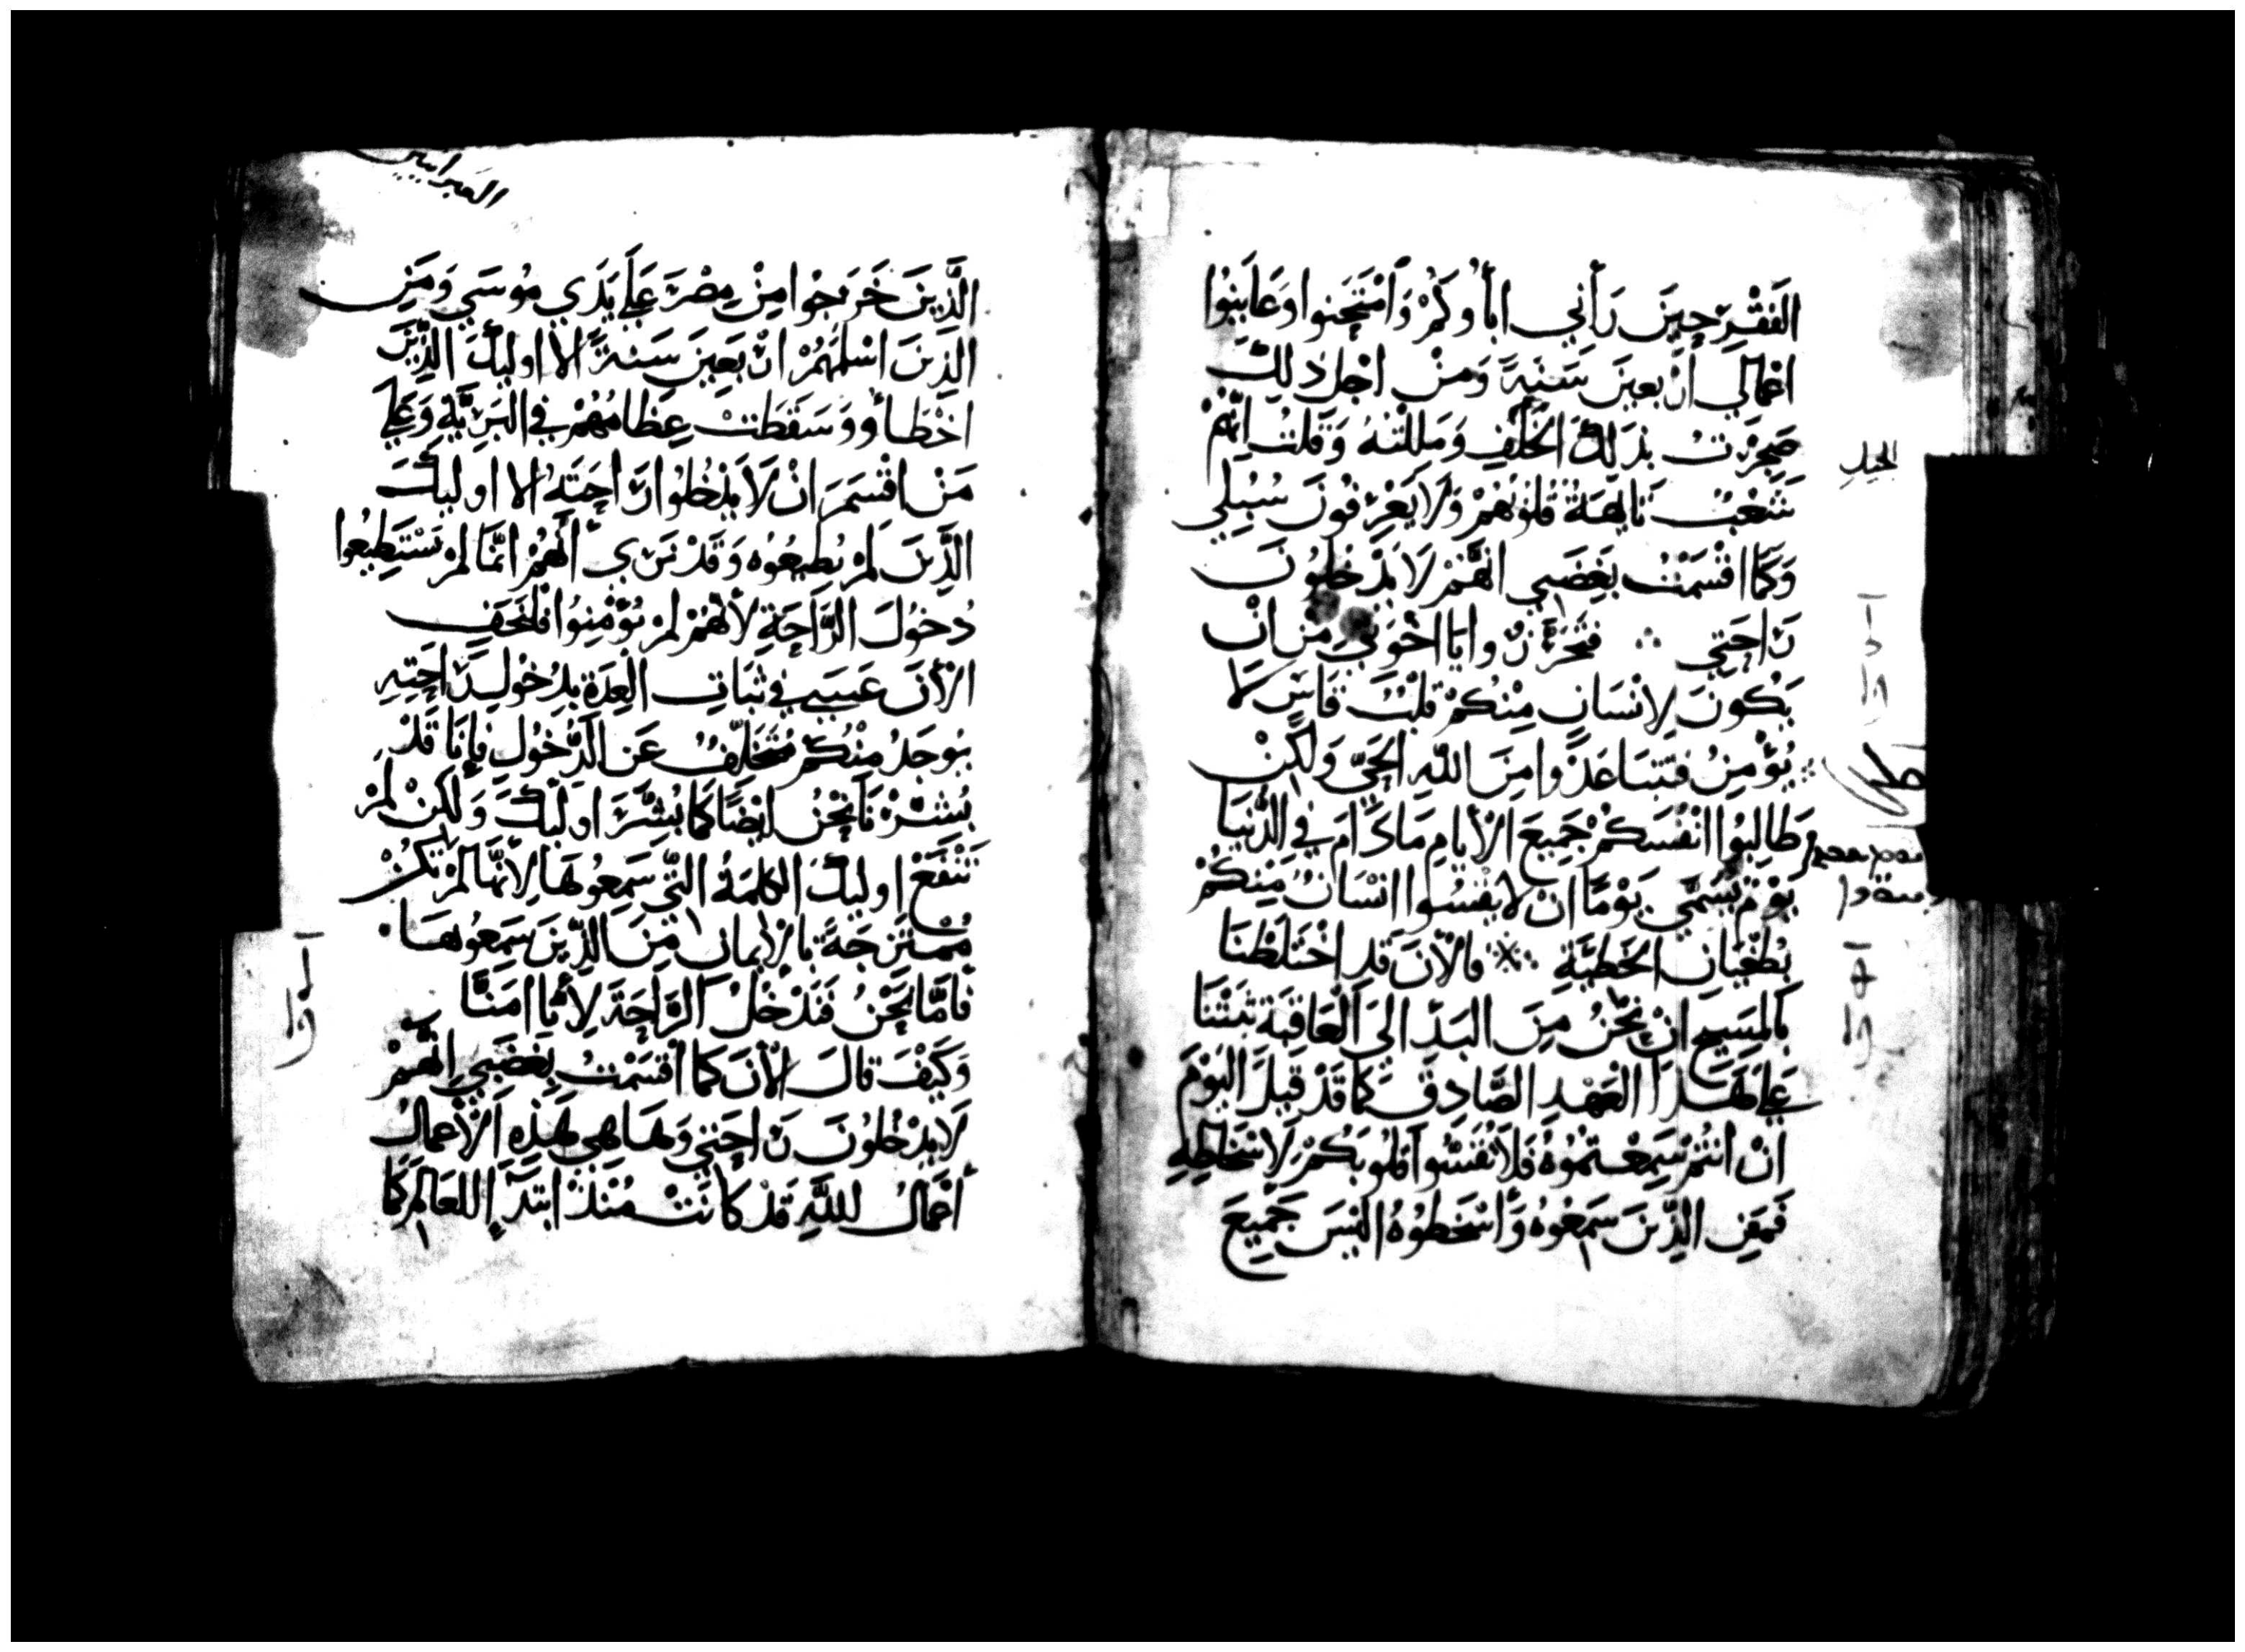 القفر حين رأني ابأوكم وامتحنوا وعاينوا
اعمالي اربعين سنة ومن اجل ذلك
ضجرت بذلك الخلف ومللته وقلت انهم
شعب تايهة قلوبهم ولا يعرفون سبيلي
وكما اقسمت بغضبي انهم لا يدخلون
راحتي ∴ فتحرزوا يا اخوتي من ان
يكون لانسان منكم قلب قاس لا
يؤمن فتتباعدوا من الله الحي ولكن
طالبوا انفسكم جميع الأيام ما دام في الدنيا
يوم يسمى يوما ان لا يقسوا انسان منكم
بطغيان الخطية ※ فالأن قد اختلطنا
بالمسيح ان نحن من البدا الى العاقبة ثبتنا
على هذا العهد الصادق كما قد قيل اليوم
ان انتم سمعتموه فلا تقسوا قلوبكم لاسخاطه
فمن الذين سمعوه وأسخطوه اليس جميع
العبرانيين
الذين خرجوا من مصر على يدي موسي ومن
الذين اسلمهم اربعين سنة الا اوليك الذين
اخطأوو سقطت عظامهم في البرية وعلى
من اقسم ان لا يدخلوا راحته الا اوليك
الذين لم يطيعوه وقد نري أنهم انما لم يستطيعوا
دخول الراحة لأنهم لم يؤمنوا فلنخف
الأن عسي في ثبات العدة بدخول راحته
يوجد منكم متخلف عن الدخول فإنا قد
بشرنا نحن ايضا كما بشر اوليك ولكن لم
تنفع اوليك الكلمة التي سمعوها لأنها لم تكن
ممتزجة بالإيمان من الذين سمعوها
فأما نحن فندخل الراحة لأنا امنا
وكيف قال الأن كما أقسمت بغضبي انهم
لا يدخلون راحتي وها هي هذه الأعمال
أعمال لله قد كانت منذ ابتدا العالم كما